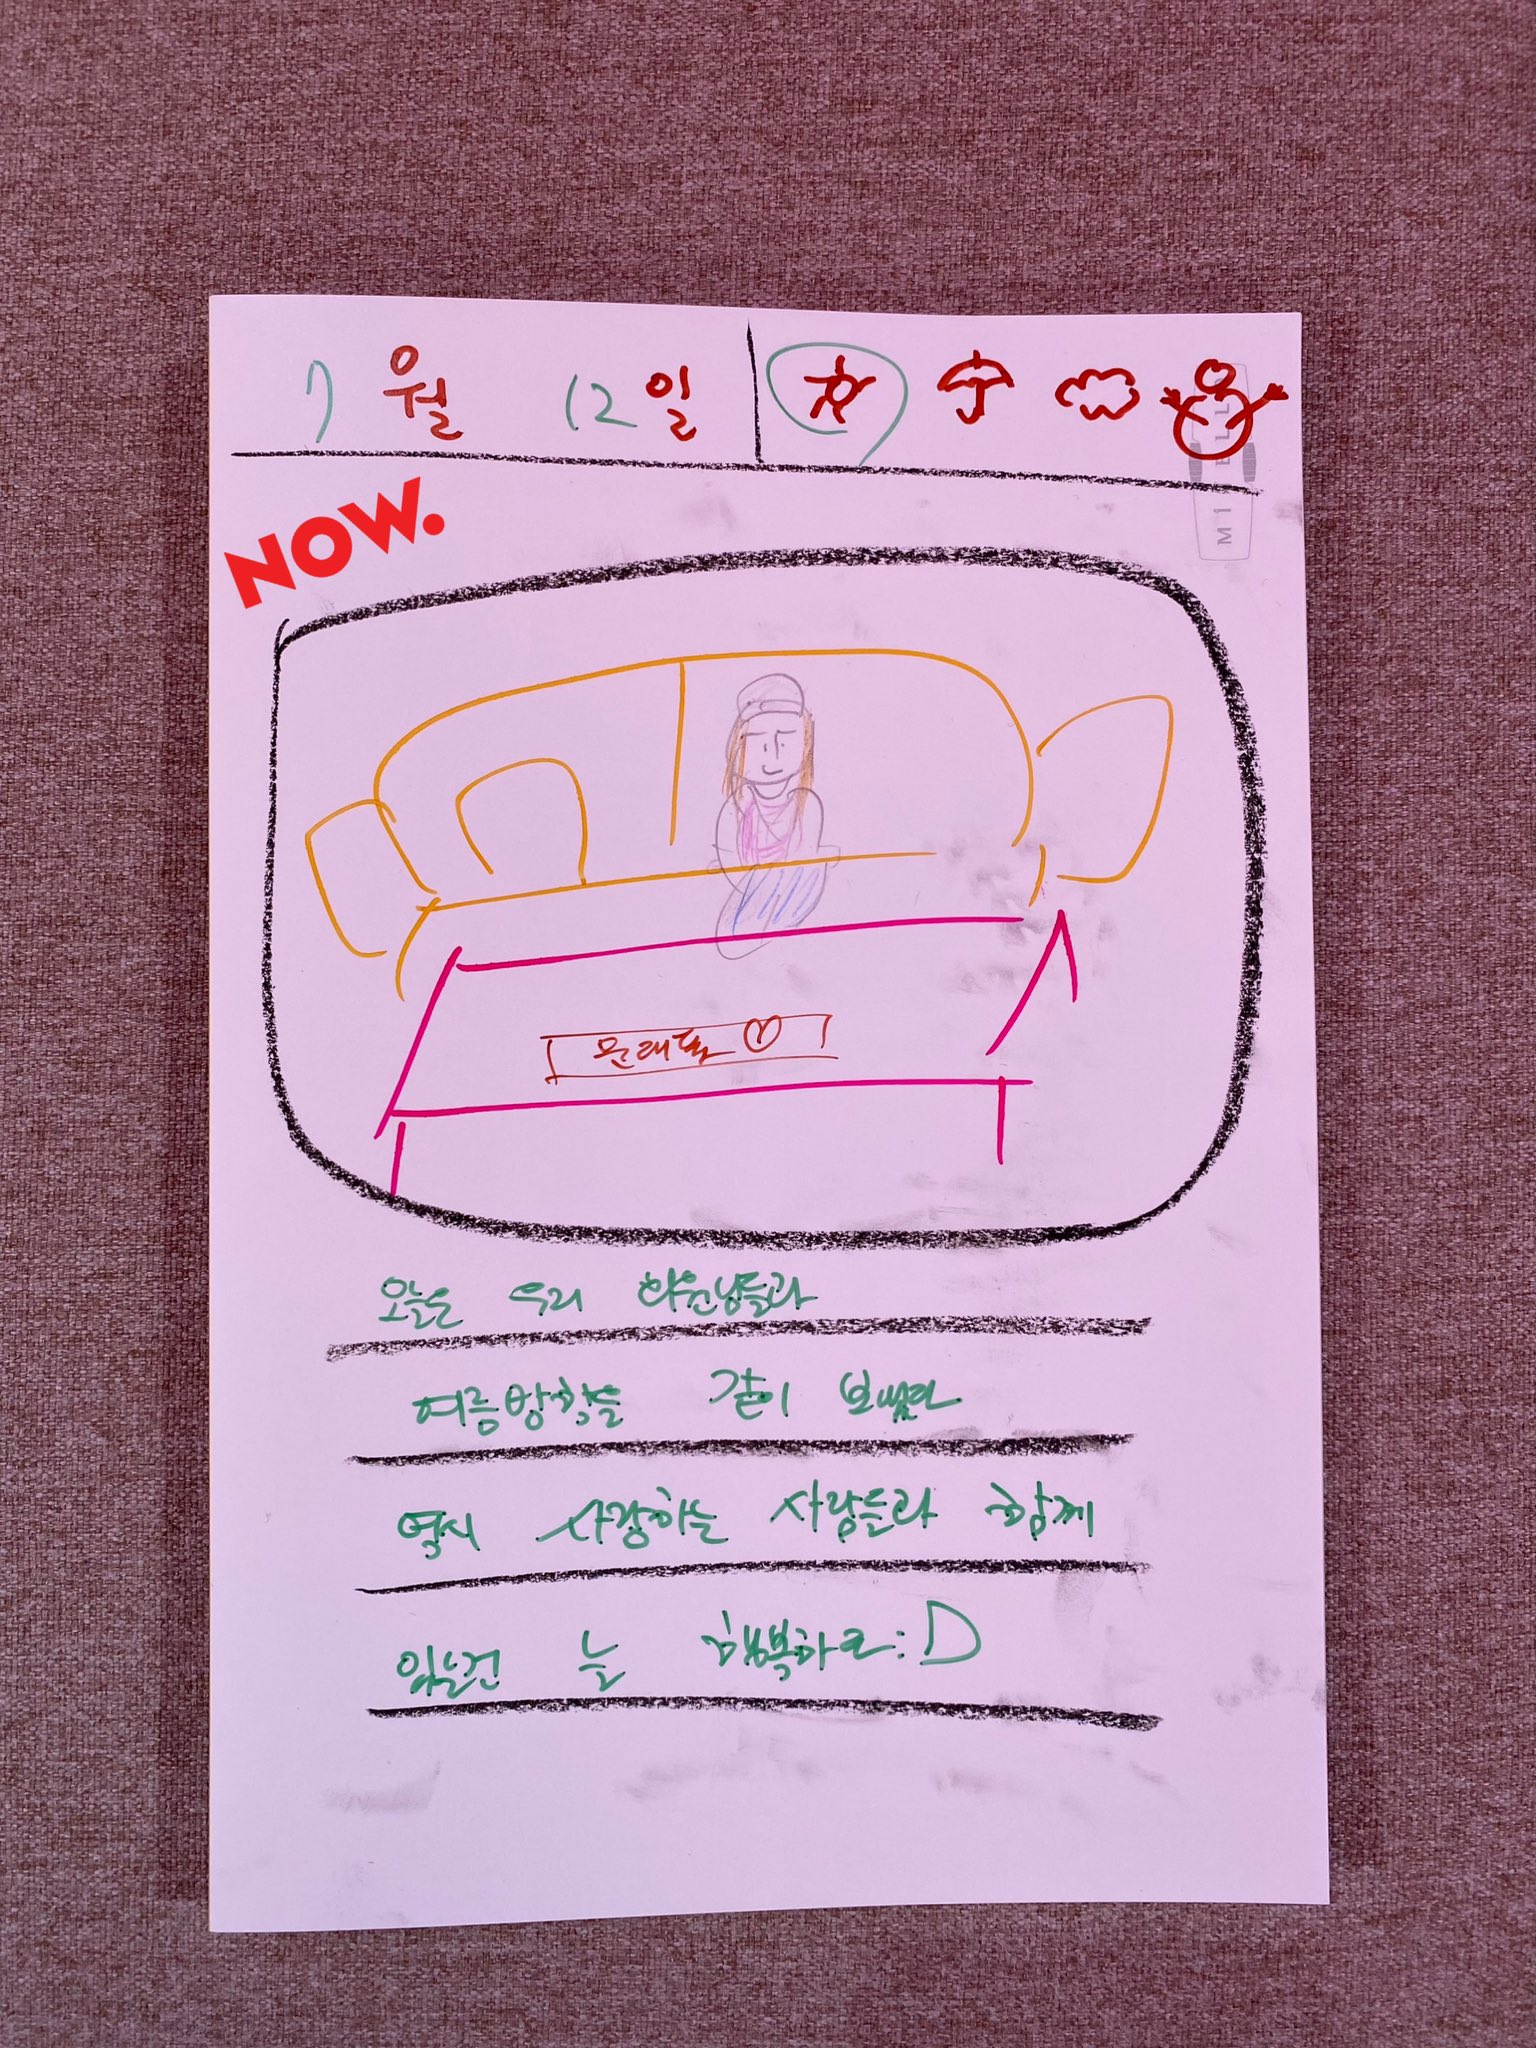 7월 12일
MIELL
NOW.
문래팸 ♡
오늘은 우리 회원님들과
여름방학을 같이 보냈다
역시 사랑하는 사람들과 함께
있는건 늘 행복하오:D